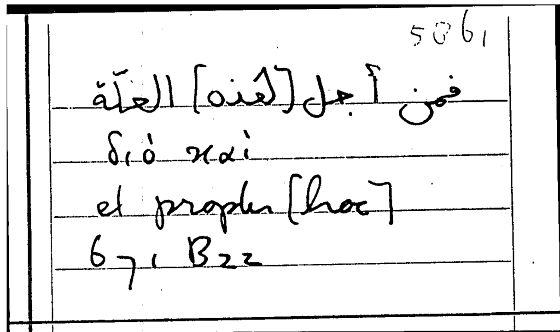 5061
فمن أجل [هذه] العلّة
διὸ καὶ
et propter [hoc]
671 B22